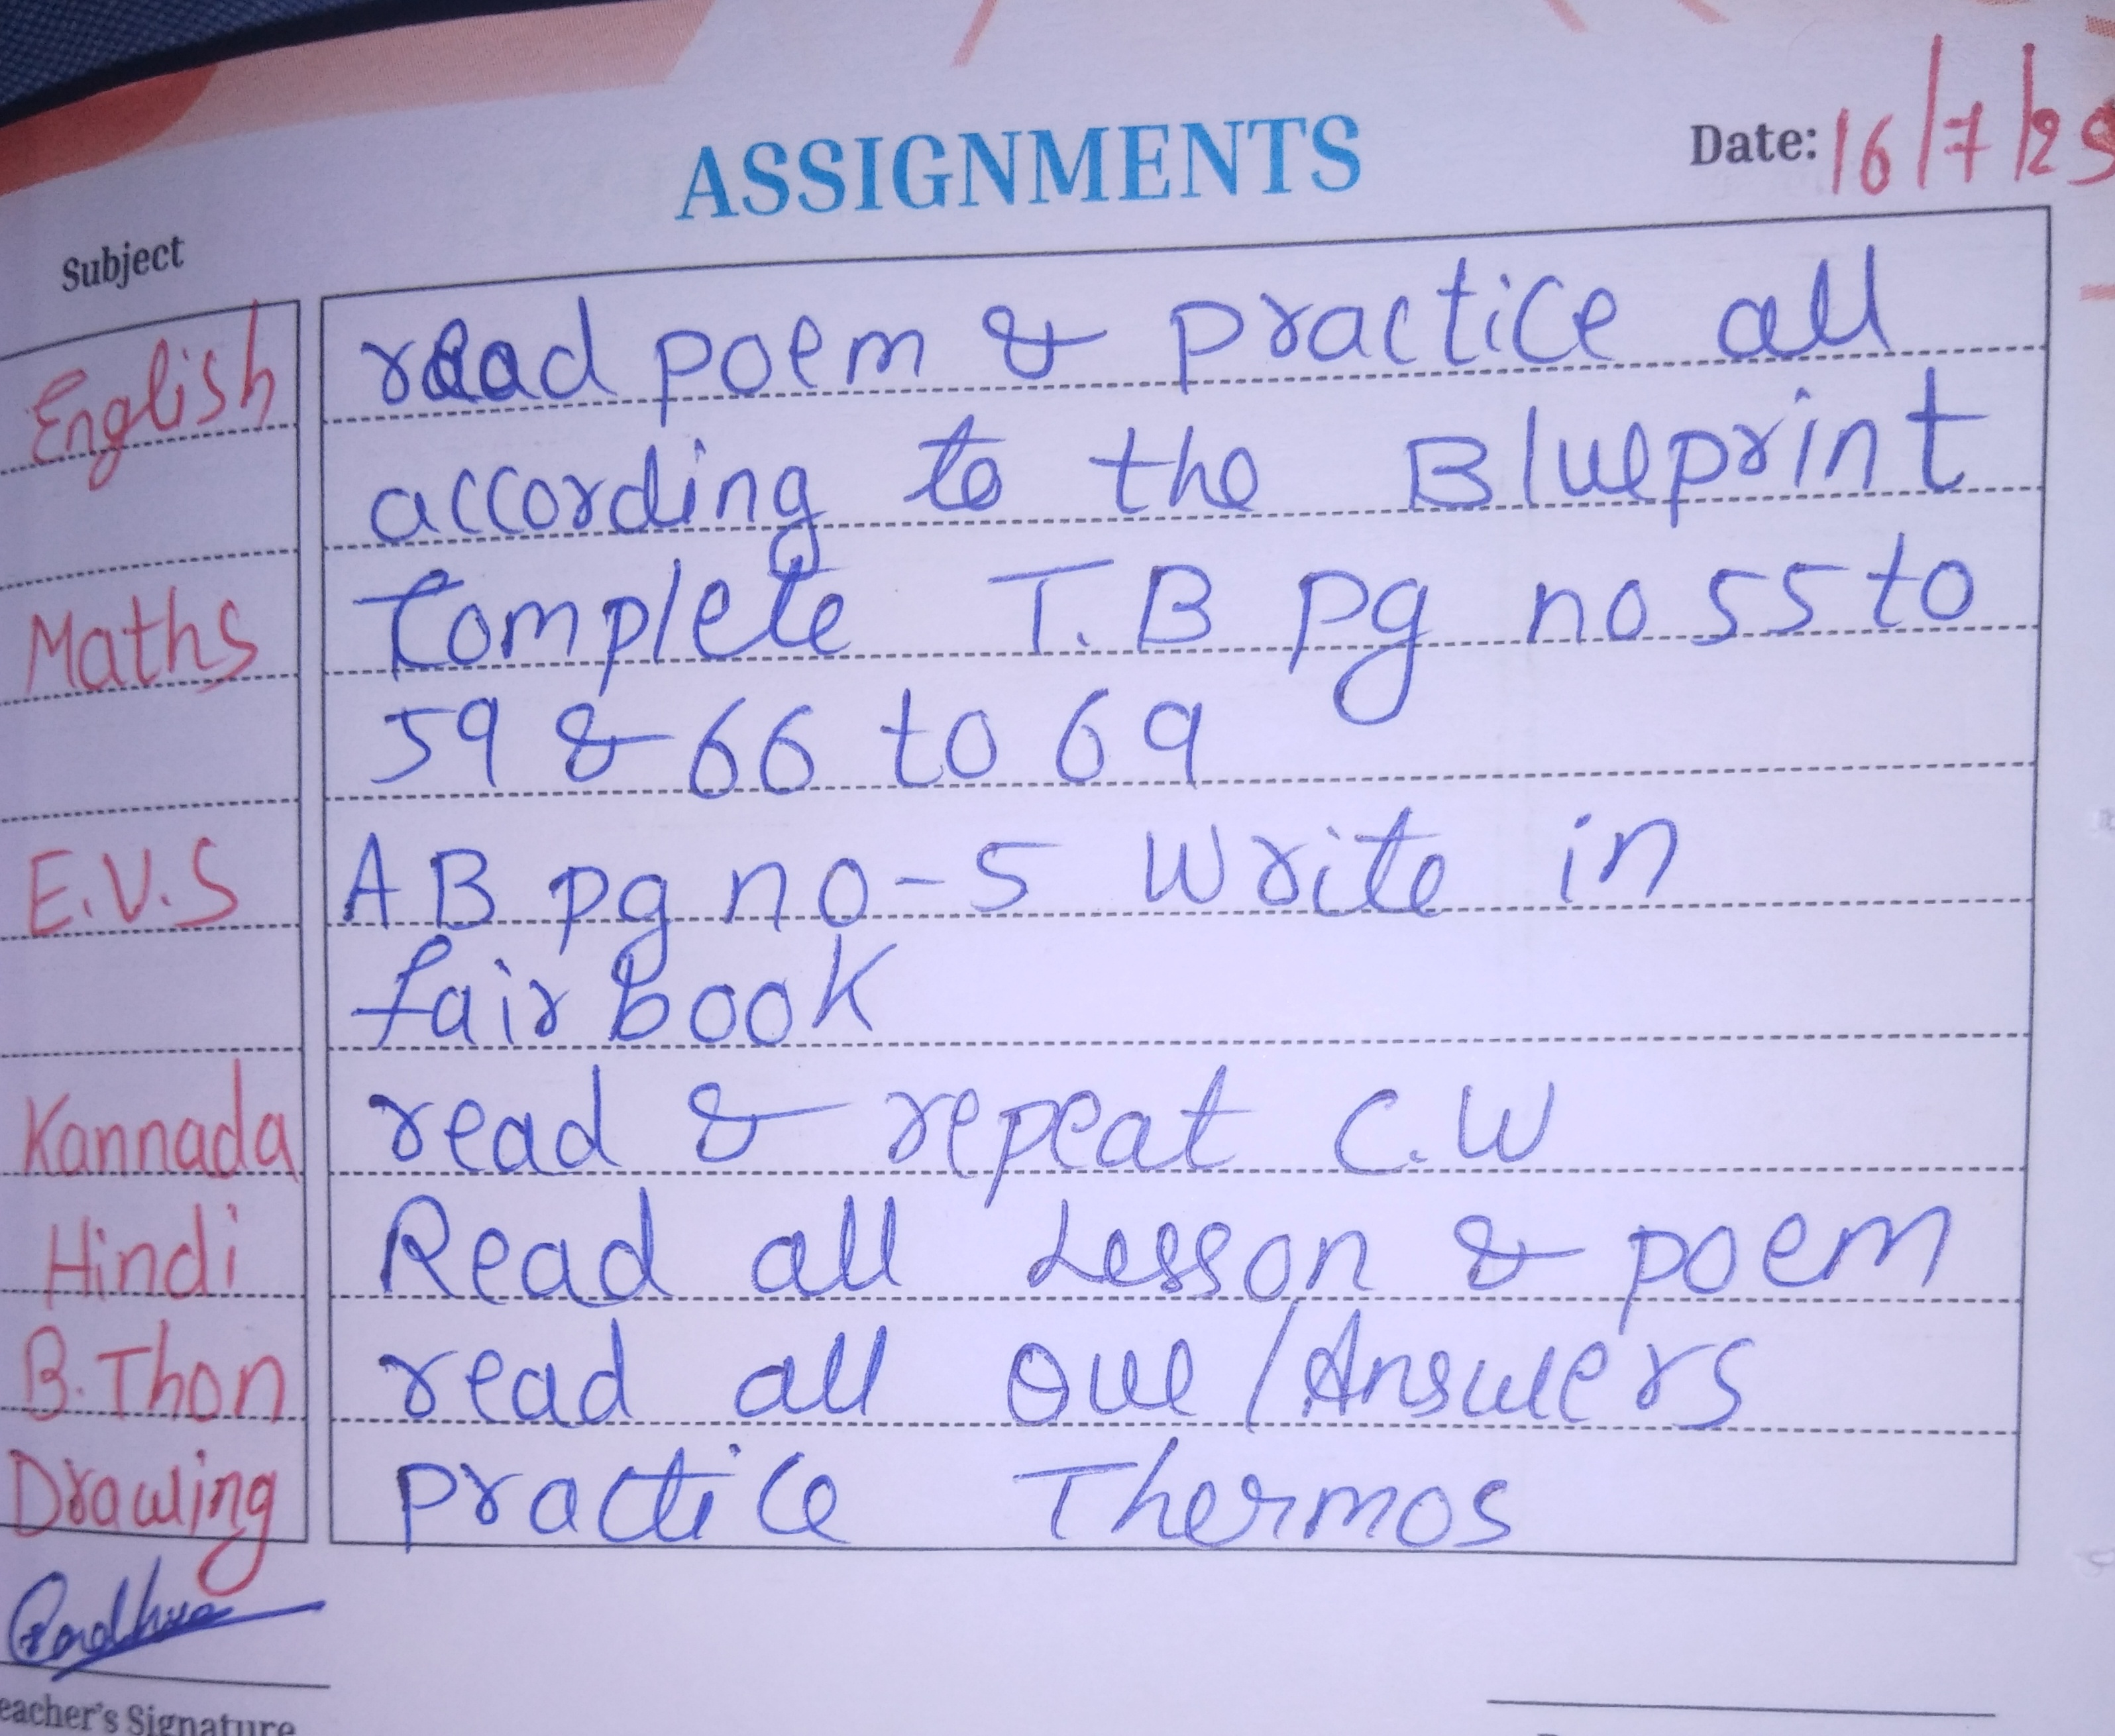 ASSIGNMENTS
Date: 16/7/25
Subject
English read poem & practice all
according to the Blueprint
Maths Complete T.B pg no 55 to
59 & 66 to 69
E.V.S AB pg no-5 Write in
fair book
Kannada read & repeat C.W
Hindi Read all Lesson & poem
B.Thon read all Que/Answers
Drawing practice Thermos
eacher's Signature